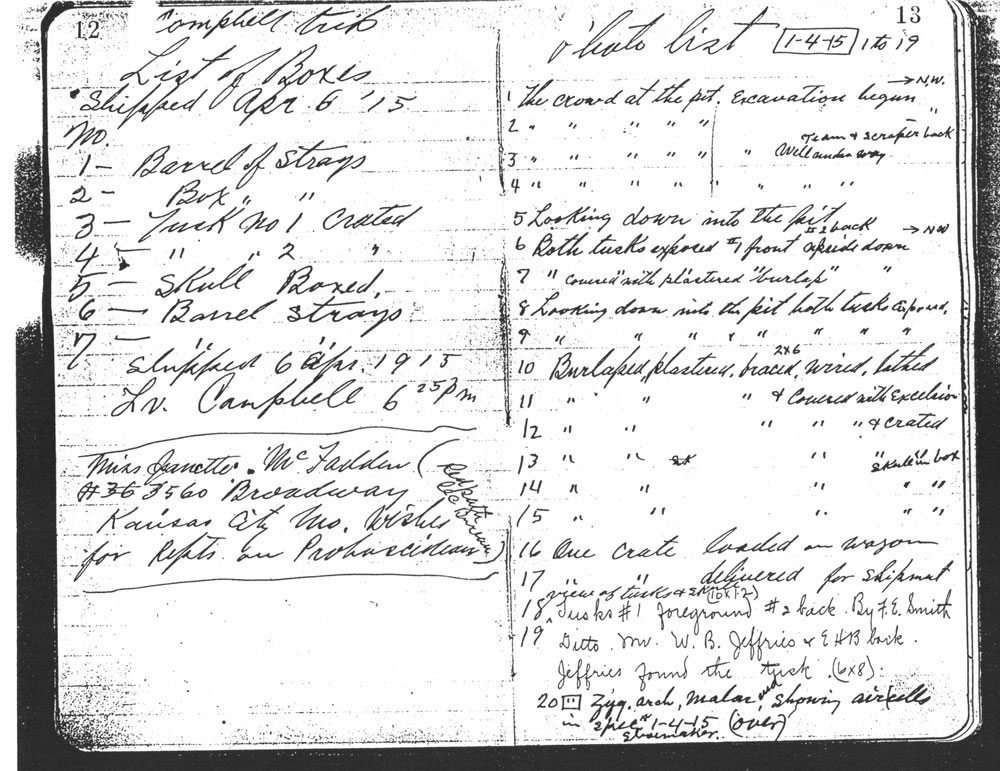 12
Campbell trip
List of Boxes
Shipped Apr 6 '15
No.
1 — Barrel of Strays
2 — Box " "
3 — Tusk No 1 Crated
4 — " " 2 "
5 — Skull Boxed.
6 — Barrel Strays
7 — "
Shipped 6 Apr. 1915
Lv. Campbell 6 25 pm
Miss Janette McFadden (
# 36 3560 Broadway
Kansas City Mo. Wishes
for Repts on Proboscidean)
13
Photo list 1-4-15 1 to 19
→ N.W.
1 The crowd at the pit. Excavation begun
2 " " " " " "
Team & scraper back
3 " " " " " " Well under way
4 " " " " " " " "
5 Looking down into the pit
#2 back → NW
6 Both tusks exposed #1 front upside down
7 " covered with plastered "burlap" "
8 Looking down into the pit both tusks exposed,
9 " " " " " " "
2x6
10 Burlaped, plastered, braced, wired, lathed
11 " " " & Covered with Excelsior
12 " " " " " & crated
13 " " " " Skull in box
14 " " " " "
15 " " " " "
16 One crate loaded on wagon
17 " " delivered for shipmnt
view of tusks & (10x12)
18 Tusks #1 foreground #2 back. By F. E. Smith
19 Ditto. Mr. W. B. Jeffries & EHB back.
Jeffries found the tusk. (6x8).
20 Zyg. arch, malar, showing air cells
in spec 1-4-15 (over)